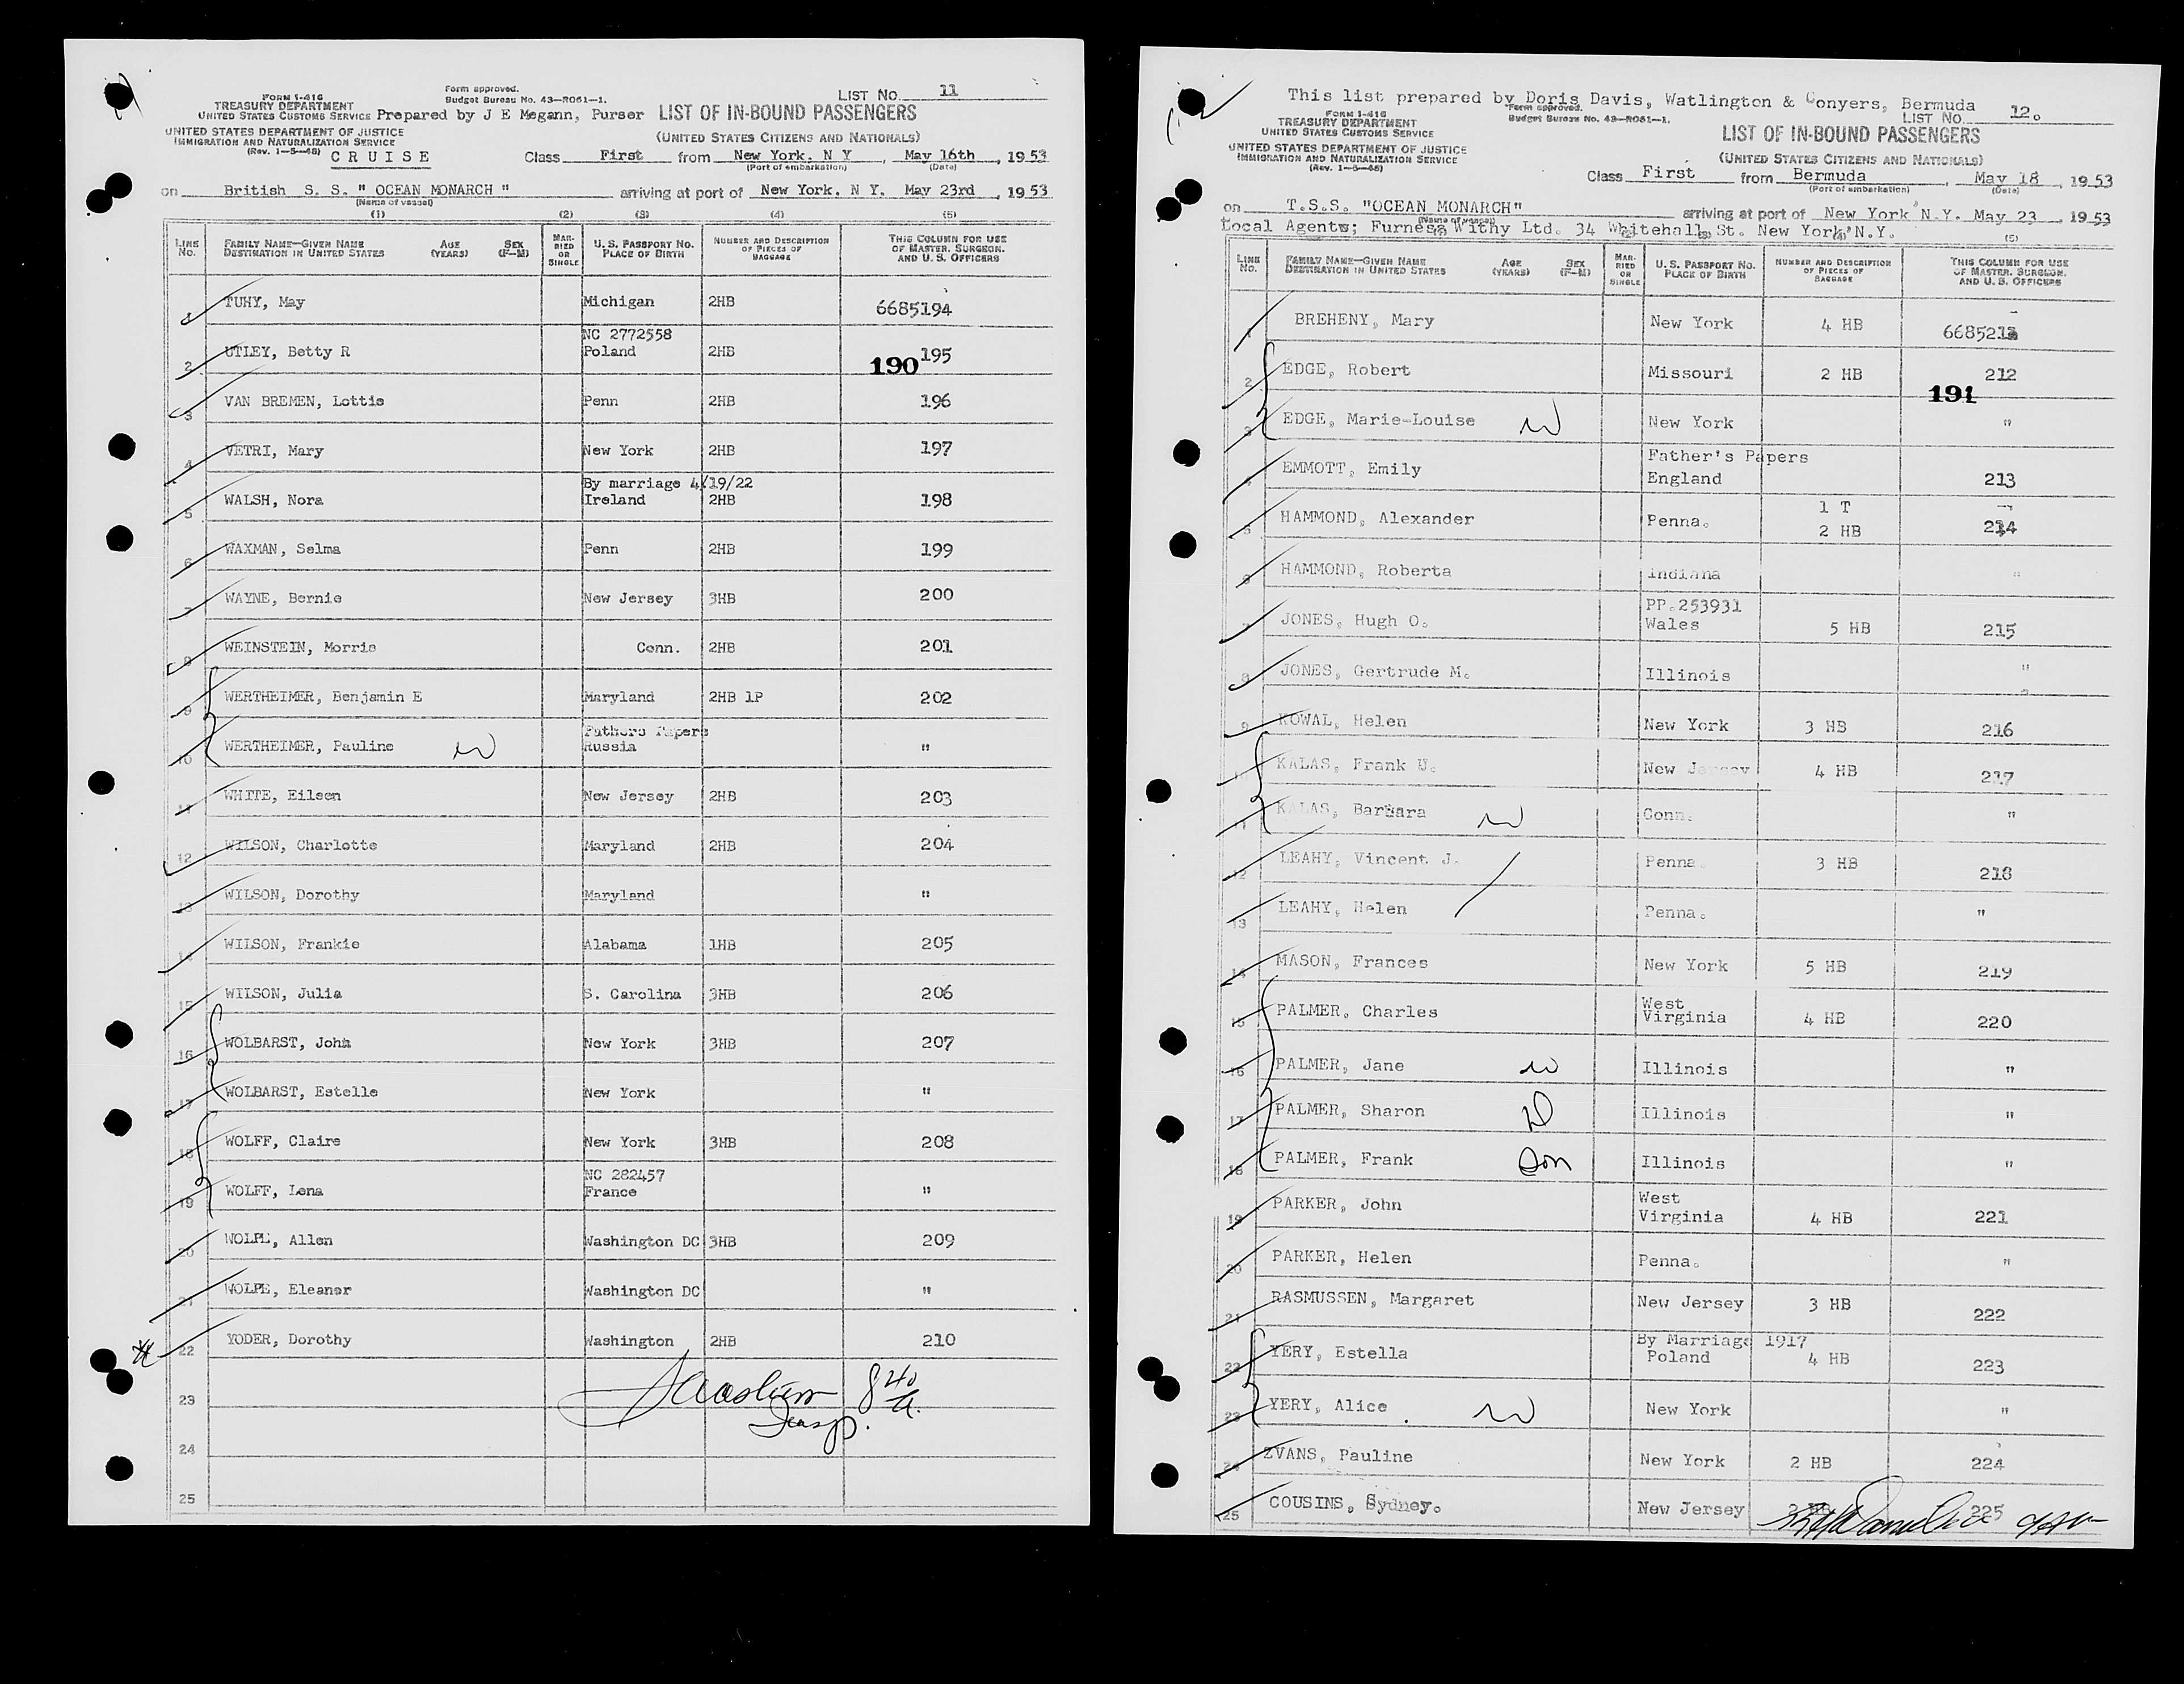 Form approved.
Budget Bureau No. 43—R061—1.
LIST No. 11
FORM I-416
TREASURY DEPARTMENT
UNITED STATES CUSTOMS SERVICE Prepared by J E Megann, Purser LIST OF IN-BOUND PASSENGERS
UNITED STATES DEPARTMENT OF JUSTICE
IMMIGRATION AND NATURALIZATION SERVICE
(UNITED STATES CITIZENS AND NATIONALS)
(Rev. 1—5—48) CRUISE Class First from New York. N Y , May 16th , 1953
(Port of embarkation) (Date)
on British S. S. " OCEAN MONARCH " arriving at port of New York. N Y. May 23rd , 1953
(Name of vessel)
(1) (2) (3) (4) (5)
LINE No. FAMILY NAME—GIVEN NAME DESTINATION IN UNITED STATES AGE (YEARS) SEX (F—M) MARRIED OR SINGLE U. S. PASSPORT NO. PLACE OF BIRTH NUMBER AND DESCRIPTION OF PIECES OF BAGGAGE THIS COLUMN FOR USE OF MASTER, SURGEON, AND U. S. OFFICERS
1 TUHY, May Michigan 2HB 6685194
NC 2772558
2 UTLEY, Betty R Poland 2HB 195
190
3 VAN BREMEN, Lottie Penn 2HB 196
4 VETRI, Mary New York 2HB 197
By marriage 4/19/22
5 WALSH, Nora Ireland 2HB 198
6 WAXMAN, Selma Penn 2HB 199
7 WAYNE, Bernie New Jersey 3HB 200
8 WEINSTEIN, Morris Conn. 2HB 201
9 WERTHEIMER, Benjamin E Maryland 2HB 1P 202
Fathers Papers
10 WERTHEIMER, Pauline W Russia "
11 WHITE, Eileen New Jersey 2HB 203
12 WILSON, Charlotte Maryland 2HB 204
13 WILSON, Dorothy Maryland "
14 WILSON, Frankie Alabama 1HB 205
15 WILSON, Julia S. Carolina 3HB 206
16 WOLBARST, John New York 3HB 207
17 WOLBARST, Estelle New York "
18 WOLFF, Claire New York 3HB 208
NC 282457
19 WOLFF, Lena France "
20 WOLPE, Allen Washington DC 3HB 209
21 WOLPE, Eleanor Washington DC "
22 YODER, Dorothy Washington 2HB 210
23
24
25
This list prepared by Doris Davis, Watlington & Conyers, Bermuda
Form approved.
Budget Bureau No. 43—R061—1.
LIST No. 12.
FORM I-416
TREASURY DEPARTMENT
UNITED STATES CUSTOMS SERVICE
LIST OF IN-BOUND PASSENGERS
UNITED STATES DEPARTMENT OF JUSTICE
IMMIGRATION AND NATURALIZATION SERVICE
(Rev. 1—5—48)
(UNITED STATES CITIZENS AND NATIONALS)
Class First from Bermuda , May 18 , 1953
(Port of embarkation) (Date)
on T.S.S. "OCEAN MONARCH" arriving at port of New York N.Y. May 23 , 1953
(Name of vessel)
Local Agents; Furness Withy Ltd. 34 Whitehall St. New York N.Y.
(5)
LINE No. FAMILY NAME—GIVEN NAME DESTINATION IN UNITED STATES AGE (YEARS) SEX (F—M) MARRIED OR SINGLE U. S. PASSPORT NO. PLACE OF BIRTH NUMBER AND DESCRIPTION OF PIECES OF BAGGAGE THIS COLUMN FOR USE OF MASTER, SURGEON, AND U. S. OFFICERS
1 BREHENY, Mary New York 4 HB
2 EDGE, Robert Missouri 2 HB 212
191
3 EDGE, Marie-Louise W New York "
Father's Papers
4 EMMOTT, Emily England 213
1 T
5 HAMMOND, Alexander Penna. 2 HB 214
6 HAMMOND, Roberta Indiana "
PP.253931
7 JONES, Hugh O. Wales 5 HB 215
8 JONES, Gertrude M. Illinois "
9 KOWAL, Helen New York 3 HB 216
10 KALAS, Frank U. New Jersey 4 HB 217
11 KALAS, Barbara W Conn. "
12 LEAHY, Vincent J. Penna. 3 HB 218
13 LEAHY, Helen Penna. "
14 MASON, Frances New York 5 HB 219
15 PALMER, Charles West Virginia 4 HB 220
16 PALMER, Jane W Illinois "
17 PALMER, Sharon D Illinois "
18 PALMER, Frank Son Illinois "
19 PARKER, John West Virginia 4 HB 221
20 PARKER, Helen Penna. "
21 RASMUSSEN, Margaret New Jersey 3 HB 222
By Marriage 1917
22 YERY, Estella Poland 4 HB 223
23 YERY, Alice W New York "
24 ZVANS, Pauline New York 2 HB 224
25 COUSINS, Sydney. New Jersey 225